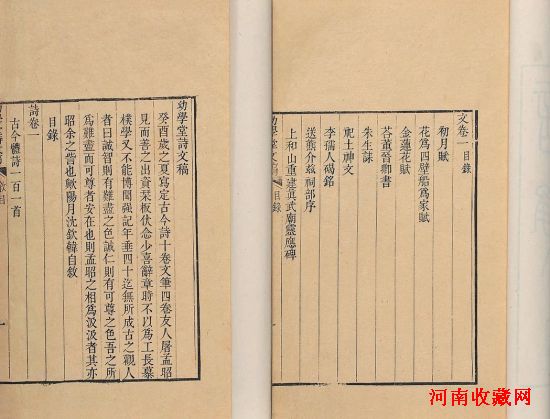 文卷一目錄
初月賦
花爲四壁船爲家賦
金蓮花賦
荅董晉卿書
朱生誄
祀土神文
李孺人碣銘
送熊介兹祠部序
上和山重建眞武廟靈應碑
目錄
幼學堂詩文稿
癸酉歲之夏寫定古今詩十卷文筆四卷友人屠孟昭
見而善之出貲栞板伏念少喜辭章時不以爲工長慕
樸學又不能博聞強記年垂四十迄無所成古之觀人
者曰誠智則有難盡之色誠仁則有可尊之色吾之所
爲難盡而可尊者安在也則孟昭之相爲汲汲者其亦
昭余之眥也歟陽月沈欽韓自敘
目錄
詩卷一
古今體詩一百一首
河南收藏网